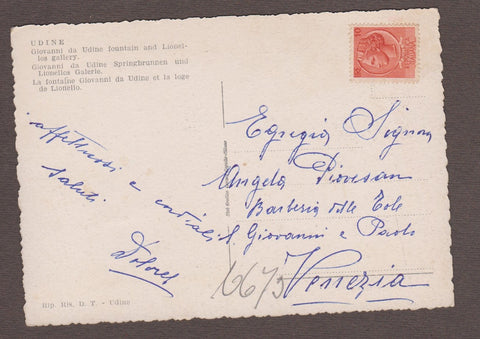 UDINE
Giovanni da Udine fountain and Lionel-
los gallery.
Giovanni da Udine Springbrunnen und
Lionellos Galerie.
La fontaine Giovanni da Udine et la loge
de Lionello.
affettuosi e cordiali
saluti.
Dolores
Egregia Signora
Angela Piovesan
Barberia delle Tole
S. Giovanni e Paolo
6673
Venezia
Rip. Ris. D. T. - Udine